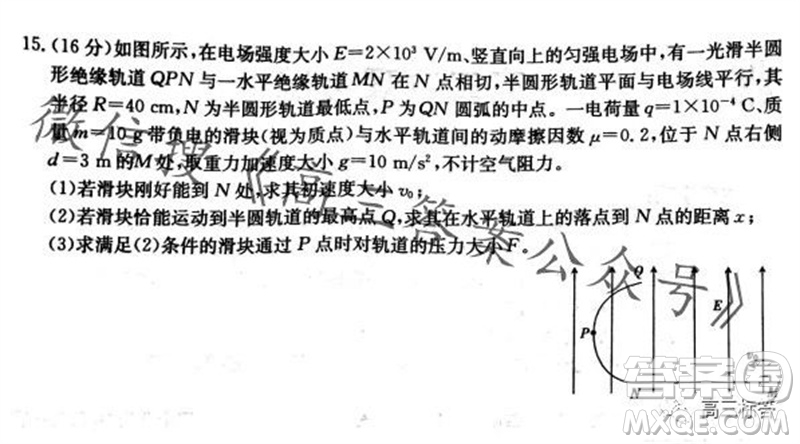 15.(16分)如图所示,在电场强度大小E=2×10³ V/m、竖直向上的匀强电场中,有一光滑半圆
形绝缘轨道QPN与一水平绝缘轨道MN在N点相切,半圆形轨道平面与电场线平行,其
半径R=40 cm,N为半圆形轨道最低点,P为QN圆弧的中点。一电荷量q=1×10⁻⁴ C、质
量m=10 g带负电的滑块(视为质点)与水平轨道间的动摩擦因数μ=0.2,位于N点右侧
d=3 m的M处,取重力加速度大小g=10 m/s²,不计空气阻力。
(1)若滑块刚好能到N处,求其初速度大小v₀;
(2)若滑块恰能运动到半圆轨道的最高点Q,求其在水平轨道上的落点到N点的距离x;
(3)求满足(2)条件的滑块通过P点时对轨道的压力大小F。
微信搜《高三答案公众号》
Q
E
P
N
M
答案圈
高三标答
MXQE.COM